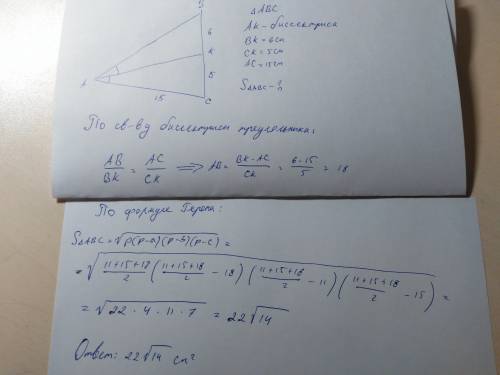 B
6
K
5
A
15
C
△ABC
AK - биссектриса
BK = 6см
CK = 5см
AC = 15см
S△ABC - ?
По св-ву биссектрисы треугольника:
AB/BK = AC/CK ⟹ AB = BK·AC/CK = 6·15/5 = 18
По формуле Герона:
S△ABC = √(p(p-a)(p-b)(p-c)) =
= √((11+15+18)/2 ((11+15+18)/2 - 18) ((11+15+18)/2 - 11) ((11+15+18)/2 - 15)) =
= √(22·4·11·7) = 22√14
Ответ: 22√14 см²